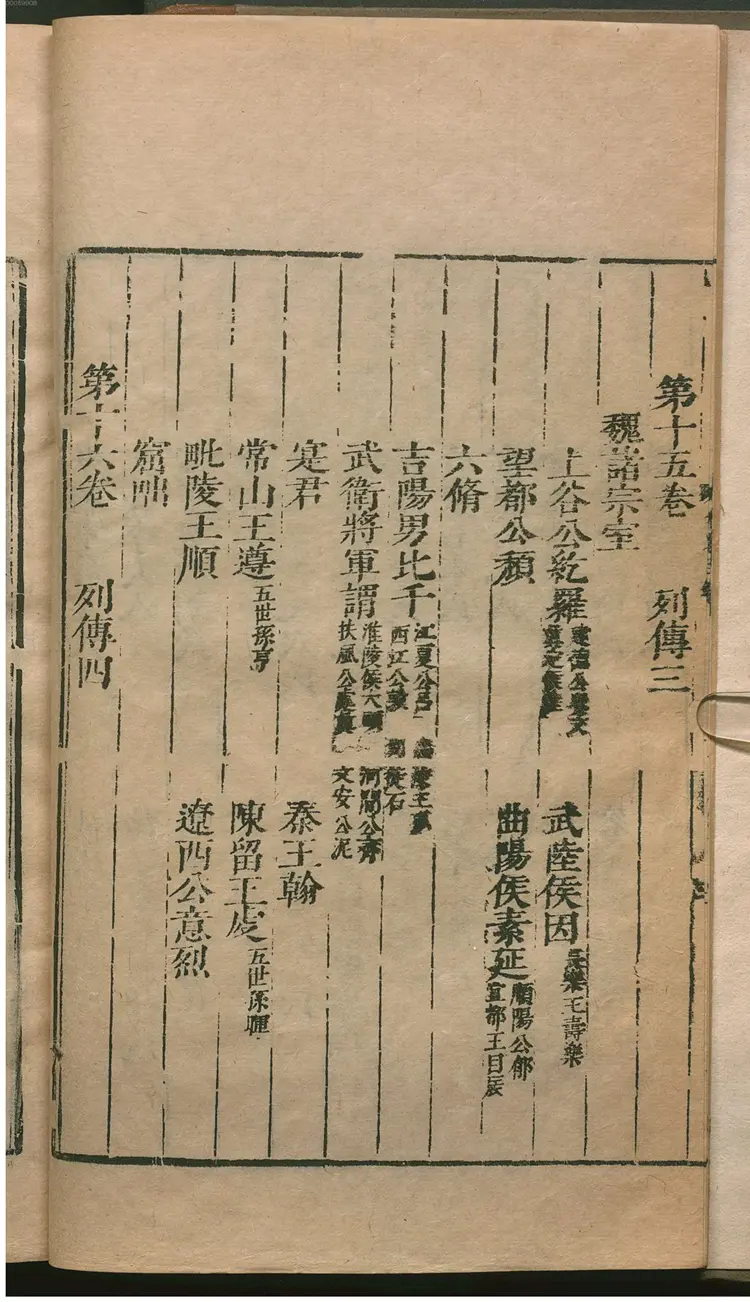 第十五卷 列傳三
魏諸宗室
上谷公紇羅 武陵侯因 長樂王壽樂
望都公頹 曲陽侯素延 順陽公郁 宜都王目辰
六脩
吉陽男比干 江夏公呂 西江公敦
武衛將軍謂 淮陵侯大頭 河間公齊 扶風公處真 文安公泥
寔君 秦王翰
常山王遵 五世孫亨 陳留王虔 五世孫暉
毗陵王順 遼西公意烈
窟咄
第十六卷 列傳四